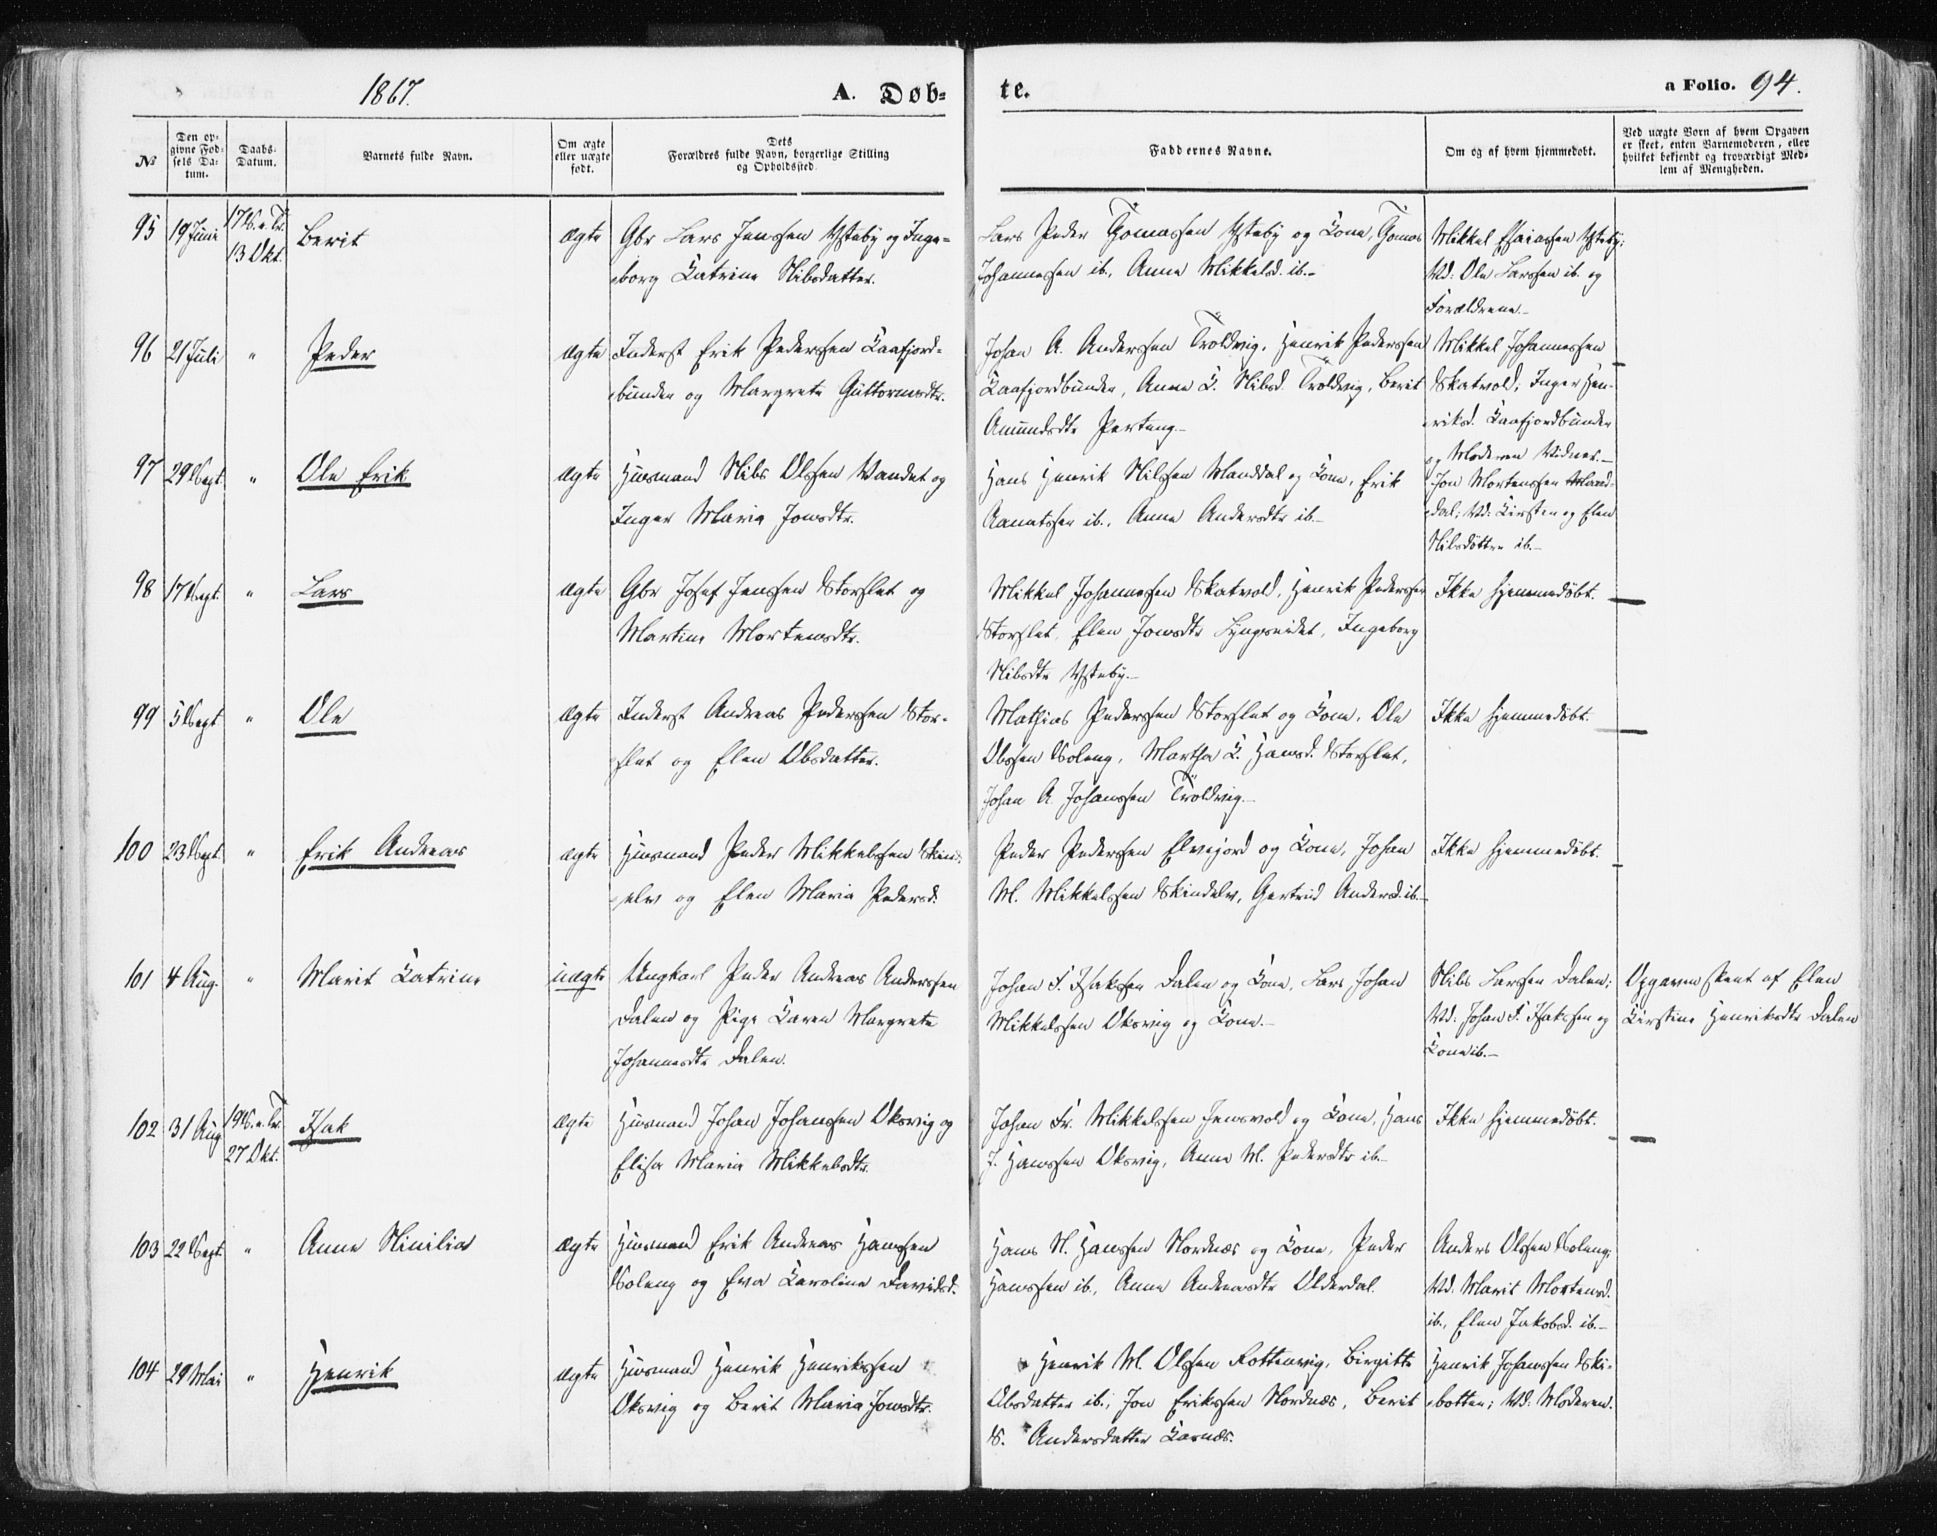 1867.
A. Døb-
te.
a Folio. 94.
№
Den op-
givne Fød-
sels Da-
tum.
Daabs-
Datum.
Barnets fulde Navn.
Om ægte
eller uægte
født.
Dets
Forældres fulde Navn, borgerlige Stilling
og Opholdssted.
Faddernes Navne.
Om og af hvem hjemmedøbt.
Ved uægte Børn af hvem Opgaven
er skeet, enten Barnemoderen, eller
hvilket bekjendt og troværdigt Med-
lem af Menigheden.
95
19 Juni
17 S. e. Tr.
13 Okt.
Berit
Ægte
Gbr Lars Jenssen Ysteby og Inge-
borg Katrine Nilsdatter.
Lars Peder Tomassen Ysteby og Kone, Tomas
Johannessen ib., Anne Mikkelsd. ib.-
Mikkel Esaiassen Ysteby;
Vd: Ole Larssen ib. og
Forældrene.-
96
21 Juli
"
Peder
Ægte
Inderst Erik Pederssen Kaafjord-
bunden og Margrete Guttormsdtr.
Johan A. Anderssen Troldvig, Henrik Pederssen
Kaafjordbunden, Anne K. Nilsd. Troldvig, Berit
Amundsdtr Pertung.-
Mikkel Johannessen
Skatvold; Inger Hen-
riksd. Kaafjordbunden
og Moderen Vidner.-
97
29 Sept.
"
Ole Erik
Ægte
Husmand Nils Olssen Vandet og
Inger Maria Jonsdtr.
Hans Henrik Nilssen Manddal og Kone, Erik
Aanetssen ib., Anne Andersdtr ib.-
Jon Mortenssen Mand-
dal; Vd: Kirsten og Elen
Nilsdøttre ib.-
98
17 Sept.
"
Lars
Ægte
Gbr Josef Jenssen Storslet og
Martine Mortensdtr.
Mikkel Johannessen Skatvold, Henrik Pederssen
Storslet, Elen Jonsdtr Lyngseidet, Ingeborg
Nilsdtr Ysteby.-
Ikke hjemmedøbt.
99
5 Sept
"
Ole
Ægte
Inderst Andreas Pederssen Stor-
slet og Elen Olsdatter.
Mathias Pederssen Storslet og Kone, Ole
Olssen Soleng, Martha K. Hansd. Storslet,
Johan A. Johanssen Troldvig.-
Ikke hjemmedøbt.
100
23 Sept
"
Erik Andreas
Ægte
Husmand Peder Mikkelssen Skind-
elv og Elen Maria Pedersd.
Peder Pederssen Elvejord og Kone, Johan
M. Mikkelssen Skindelv, Gertrud Andersd. ib.-
Ikke hjemmedøbt.
101
4 Aug.
"
Marit Katrine
uægte
Ungkarl Peder Andreas Anderssen
Dalen og Pige Karen Margrete
Johannesdtr Dalen.
Johan F. Isakssen Dalen og Kone, Lars Johan
Mikkelssen Oksvig og Kone.-
Nils Larssen Dalen;
Vd: Johan F. Isakssen og
Kone ib.-
Opgaven skeet af Elen
Kirstine Henriksdtr Dalen
102
31 Aug
19 S. e. Tr.
27 Okt.
Isak
Ægte
Husmand Johan Johanssen Oksvig og
Elisa Maria Mikkelsdtr.
Johan Fr. Mikkelssen Jensvold og Kone, Hans
J. Hanssen Oksvig, Anne M. Pedersdtr ib.-
Ikke hjemmedøbt.
103
22 Sept.
"
Anne Ninilia
Ægte
Husmand Erik Andreas Hanssen
Soleng og Eva Karoline Davidsd.
Hans N. Hanssen Nordnæs og Kone, Peder
Hanssen ib., Anne Andreasdtr Olderdal.
Anders Olssen Soleng;
Vd: Marit Mortensd.
ib., Elen Jakobsd. ib.-
104
29 Mai
"
Henrik
Ægte
Husmand Henrik Henrikssen
Oksvig og Berit Maria Jonsdtr.
Henrik M. Olssen Rottenvig, Birgitte
Olsdatter ib., Jon Erikssen Nordnæs, Berit
S. Andersdatter Kornæs.
Henrik Johanssen Ski-
botten; Vd: Moderen.